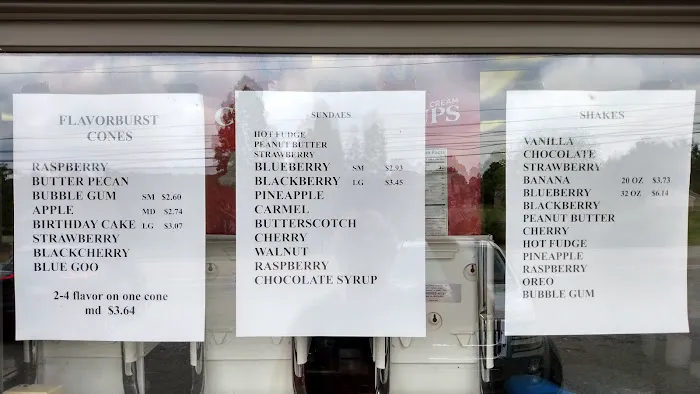 FLAVORBURST
CONES
RASPBERRY
BUTTER PECAN
BUBBLE GUM SM $2.60
APPLE MD $2.74
BIRTHDAY CAKE LG $3.07
STRAWBERRY
BLACKCHERRY
BLUE GOO
2-4 flavor on one cone
md $3.64
SUNDAES
HOT FUDGE
PEANUT BUTTER
STRAWBERRY
BLUEBERRY SM $2.93
BLACKBERRY LG $3.45
PINEAPPLE
CARMEL
BUTTERSCOTCH
CHERRY
WALNUT
RASPBERRY
CHOCOLATE SYRUP
CREAM
PS
SHAKES
VANILLA
CHOCOLATE
STRAWBERRY
BANANA 20 OZ $3.73
BLUEBERRY 32 OZ $6.14
BLACKBERRY
PEANUT BUTTER
CHERRY
HOT FUDGE
PINEAPPLE
RASPBERRY
OREO
BUBBLE GUM